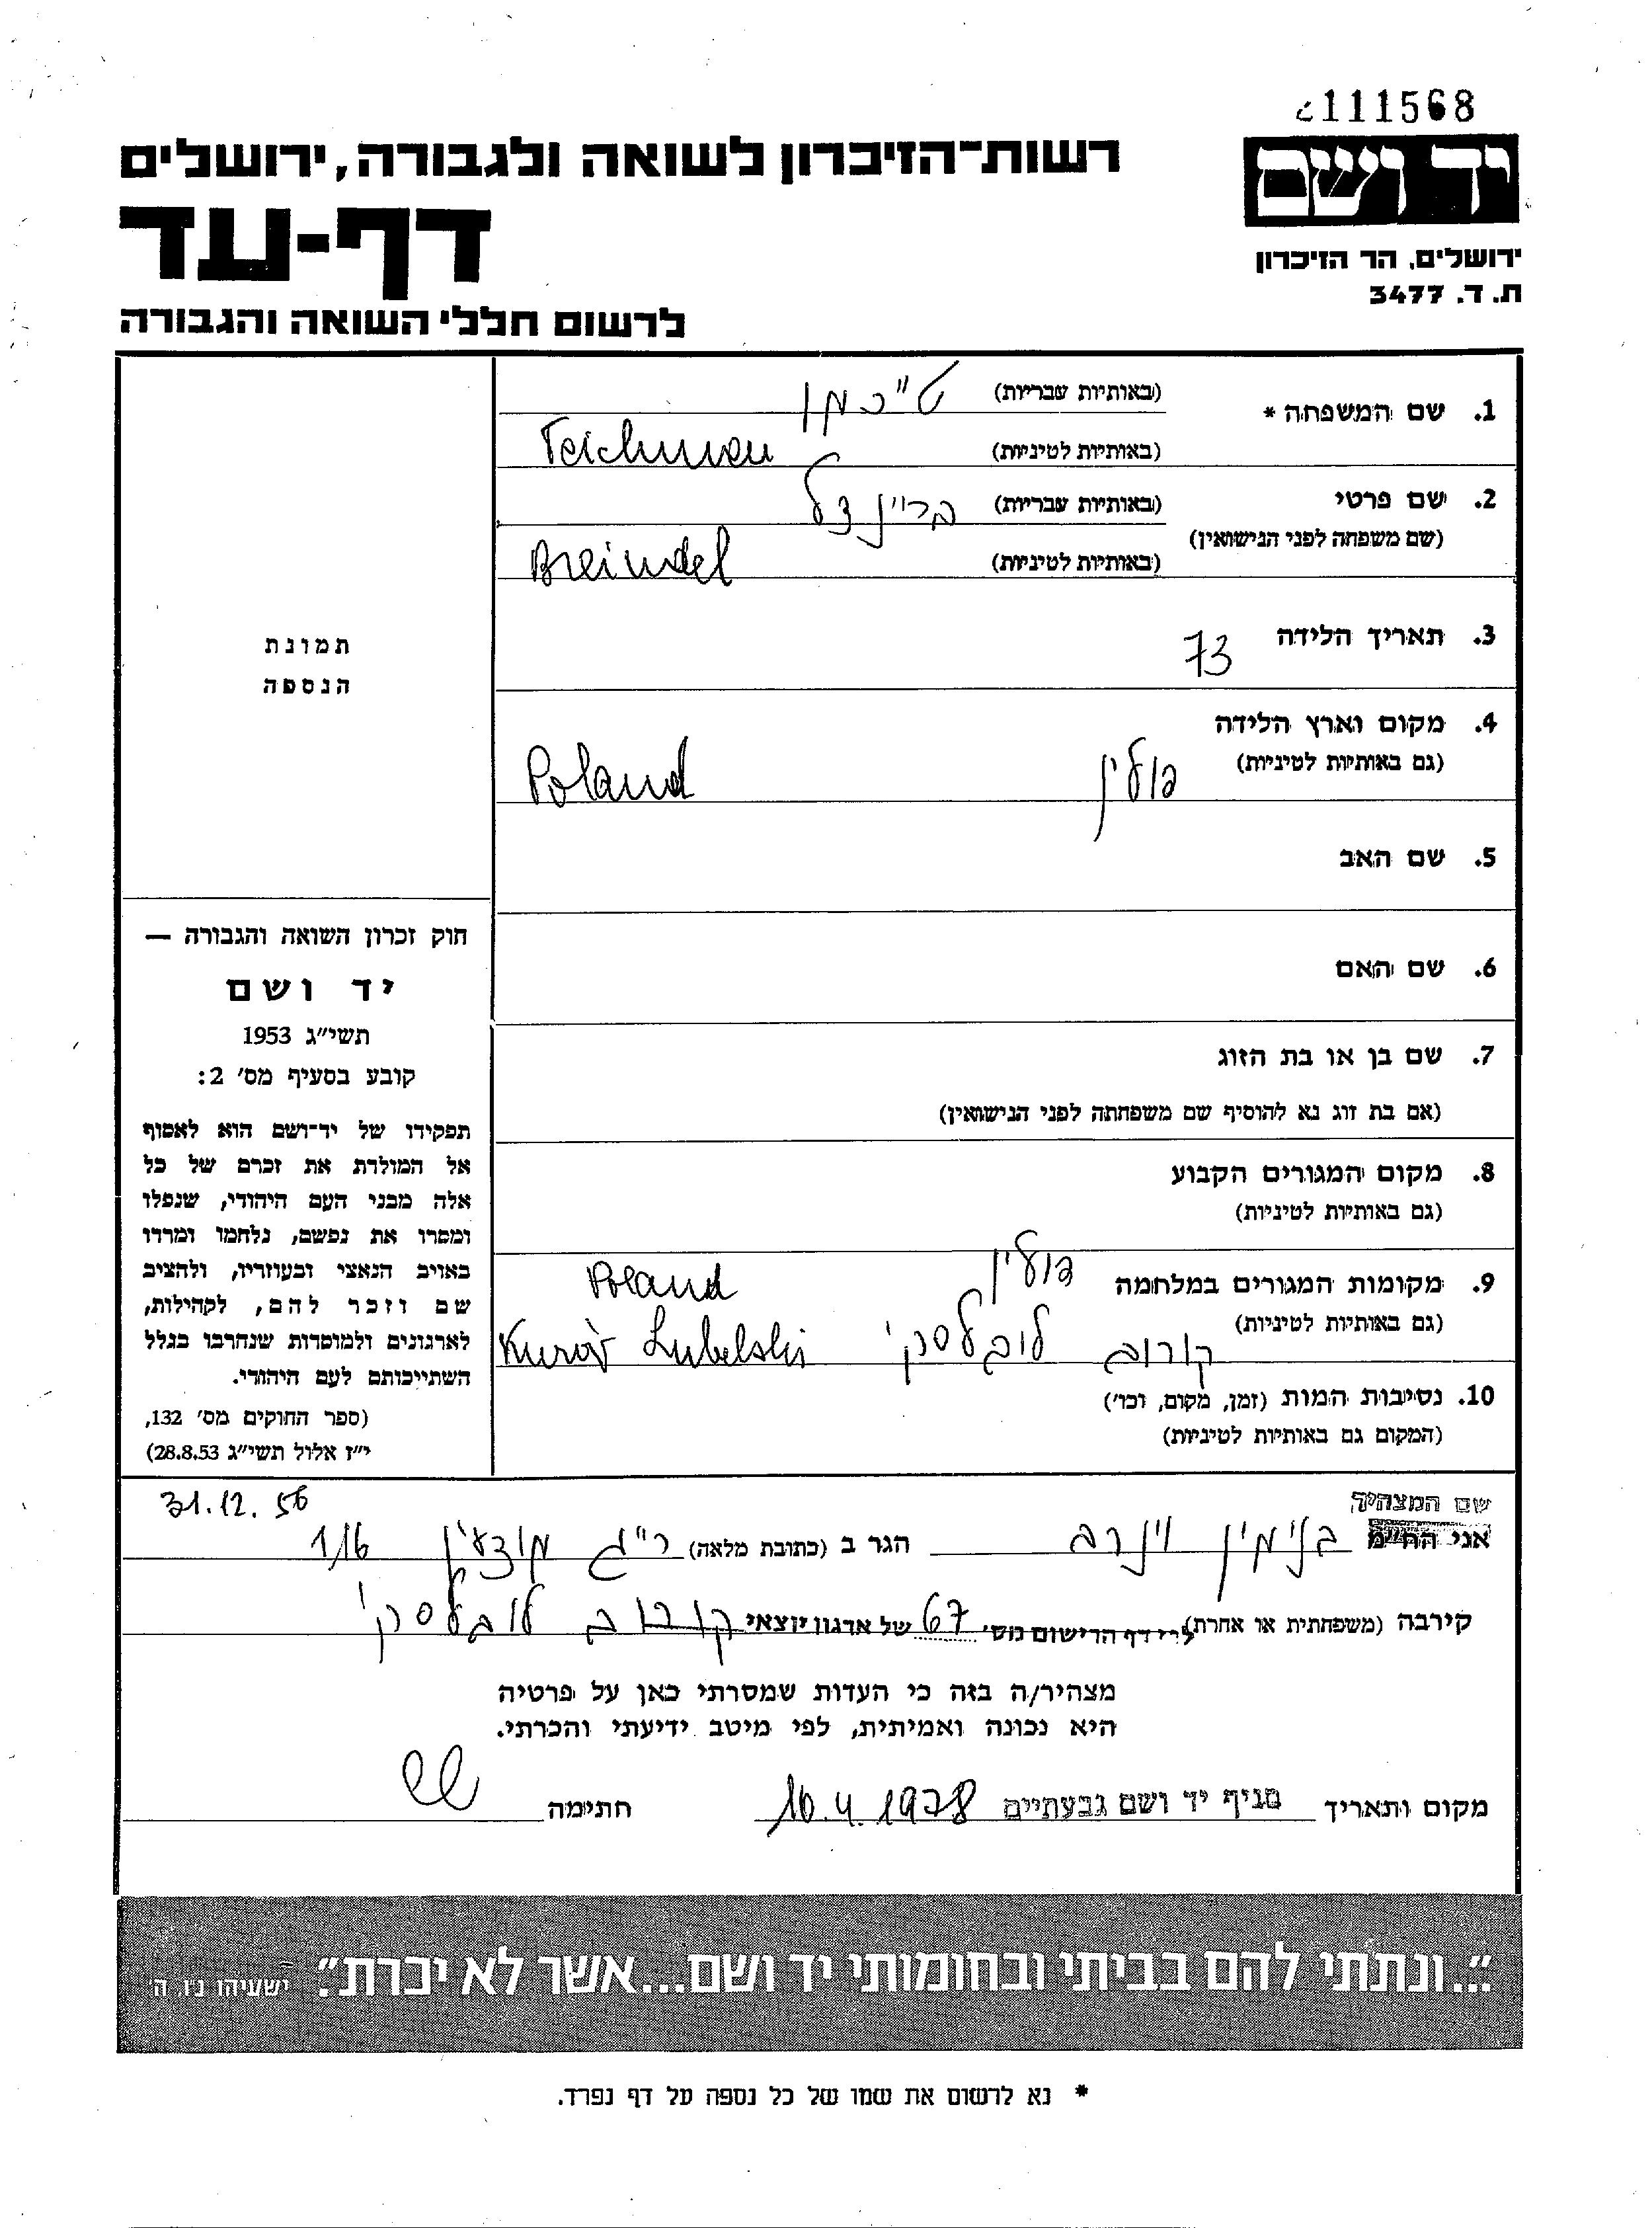 2111568
יד ושם
רשות־הזיכרון לשואה ולגבורה, ירושלים
דף-עד
ירושלים, הר הזיכרון
ת. ד. 3477
לרשום חללי השואה והגבורה
1. שם המשפחה *
(באותיות עבריות) טייכמן
(באותיות לטיניות) Teichman
2. שם פרטי
(שם משפחה לפני הנישואין)
(באותיות עבריות) בריינדל
(באותיות לטיניות) Breindel
3. תאריך הלידה 73
4. מקום וארץ הלידה
(גם באותיות לטיניות) פולין Poland
5. שם האב
6. שם האם
7. שם בן או בת הזוג
(אם בת זוג נא להוסיף שם משפחתה לפני הנישואין)
8. מקום המגורים הקבוע
(גם באותיות לטיניות)
9. מקומות המגורים במלחמה פולין Poland
(גם באותיות לטיניות) קורוב לובלסקי Kurów Lubelski
10. נסיבות המות (זמן, מקום, וכו')
(המקום גם באותיות לטיניות)
תמונת
הנספה
חוק זכרון השואה והגבורה —
יד ושם
תשי״ג 1953
קובע בסעיף מס׳ 2:
תפקידו של יד־ושם הוא לאסוף
אל המולדת את זכרם של כל
אלה מבני העם היהודי, שנפלו
ומסרו את נפשם, נלחמו ומרדו
באויב הנאצי ובעוזריו, ולהציב
שם וזכר להם, לקהילות,
לארגונים ולמוסדות שנחרבו בגלל
השתייכותם לעם היהודי.
(ספר החוקים מס׳ 132,
י״ז אלול תשי״ג 28.8.53)
31.12.56
שם המצהיר,
אני הח״מ בנימין וינרב הגר ב (כתובת מלאה) ר"ג מודעין 1/16
קירבה (משפחתית או אחרת) לפי דף הרישום מס׳ 67 של ארגון יוצאי קורוב לובלסקי
מצהיר/ה בזה כי העדות שמסרתי כאן על פרטיה
היא נכונה ואמיתית, לפי מיטב ידיעתי והכרתי.
מקום ותאריך סניף יד ושם גבעתיים 16.4.1978 חתימה
"...ונתתי להם בביתי ובחומותי יד ושם...אשר לא יכרת". ישעיהו נ״ו, ה׳
* נא לרשום את שמו של כל נספה על דף נפרד.